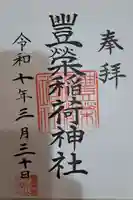 奉拝
豐榮稲荷神社
令和七年三月三十日